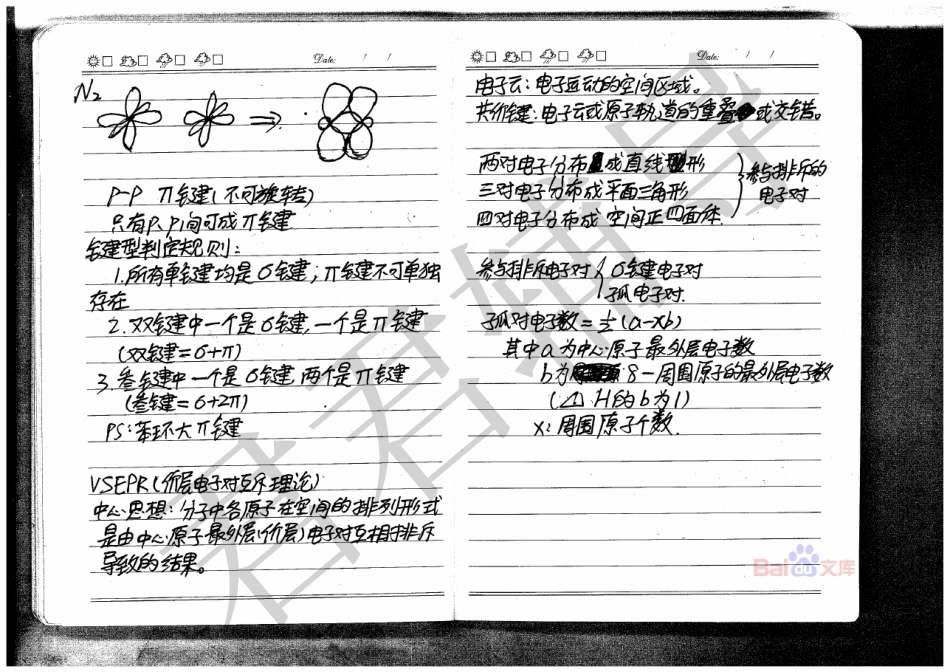 Date: / /
N₂
P-P π键(不可旋转)
只有P、P间可成π键
键型判定规则:
1.所有单键均是σ键;π键不可单独
存在
2.双键中一个是σ键,一个是π键
(双键=σ+π)
3.叁键中一个是σ键,两个是π键
(叁键=σ+2π)
PS:苯环大π键
VSEPR(价层电子对互斥理论)
中心思想:分子中各原子在空间的排列形式
是由中心原子最外层(价层)电子对互相排斥
导致的结果。
Date: / /
电子云:电子运动的空间区域。
共价键:电子云或原子轨道的重叠或交错。
两对电子分布成直线形
三对电子分布成平面三角形
四对电子分布成 空间正四面体.
参与排斥的
电子对
参与排斥电子对
σ键电子对
孤电子对.
孤对电子数=½(a-xb)
其中a为中心原子最外层电子数
b为 8-周围原子的最外层电子数
(△ H的b为1)
x:周围原子个数.
君君辅导
Bai du 文库